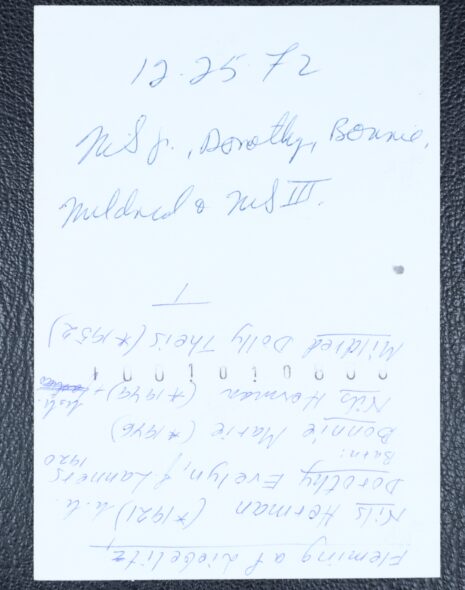 12.25 72
NLS jr., Dorothy, Bonnie,
Mildred & NLS III.
Fleming af Liebelitz
Nils Herman (*1921) u.a.
Dorothy Evelyn, f Lanners
1920
Barn:
Bonnie Marie (*1946)
Nils Herman (*1949) +
Mildred Dolly Theis (*1952)